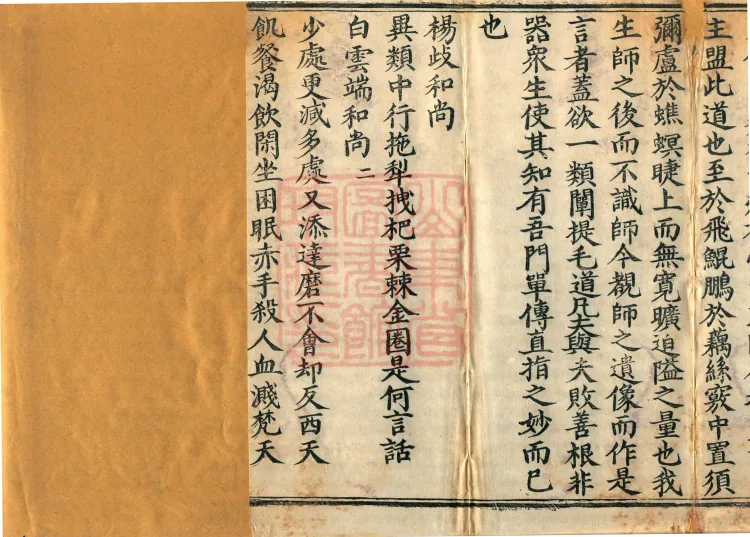 主盟此道也至於飛鯤鵬於藕絲竅中置須
彌盧於蟭螟睫上而無寬曠迫隘之量也我
生師之後而不識師今觀師之遺像而作是
言者蓋欲一類闡提毛道凡夫與夫敗善根非
器衆生使其知有吾門單傳直指之妙而已
也
楊歧和尚
異類中行拖犁拽杷栗棘金圈是何言話
白雲端和尚二
少處更减多處又添達磨不會却反西天
飢餐渴飲閑坐困眠赤手殺人血濺梵天